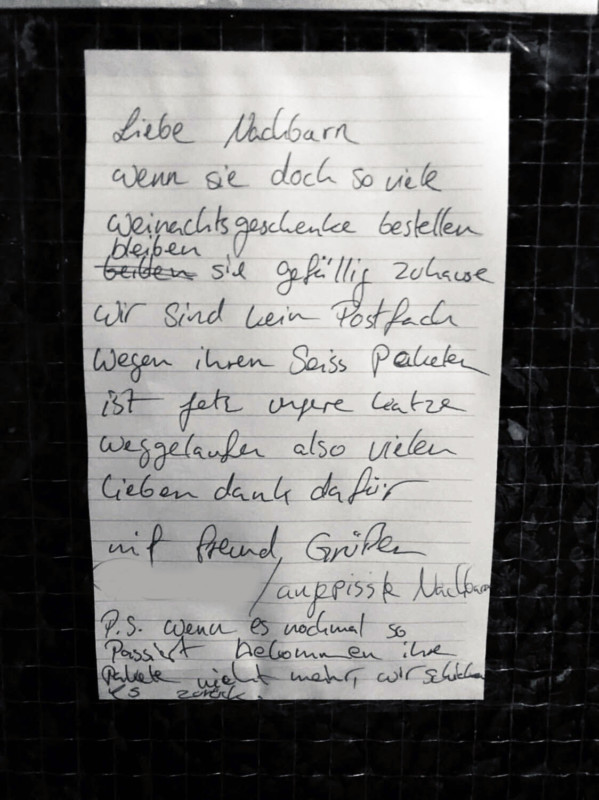 Liebe Nachbarn
wenn sie doch so viele
Weinachtsgeschenke bestellen
bleiben
beiben sie gefällig zuhause
wir sind kein Postfach
Wegen ihren Seiss Paketen
ist jetz unsere Katze
weggelaufen also vielen
lieben dank dafür
mit freund, Grüßen
/angepisste Nachbarn
P.S. wenn es nochmal so
Passirt bekommen ihre
Pakete nicht mehr, wir schicken
es zurück.